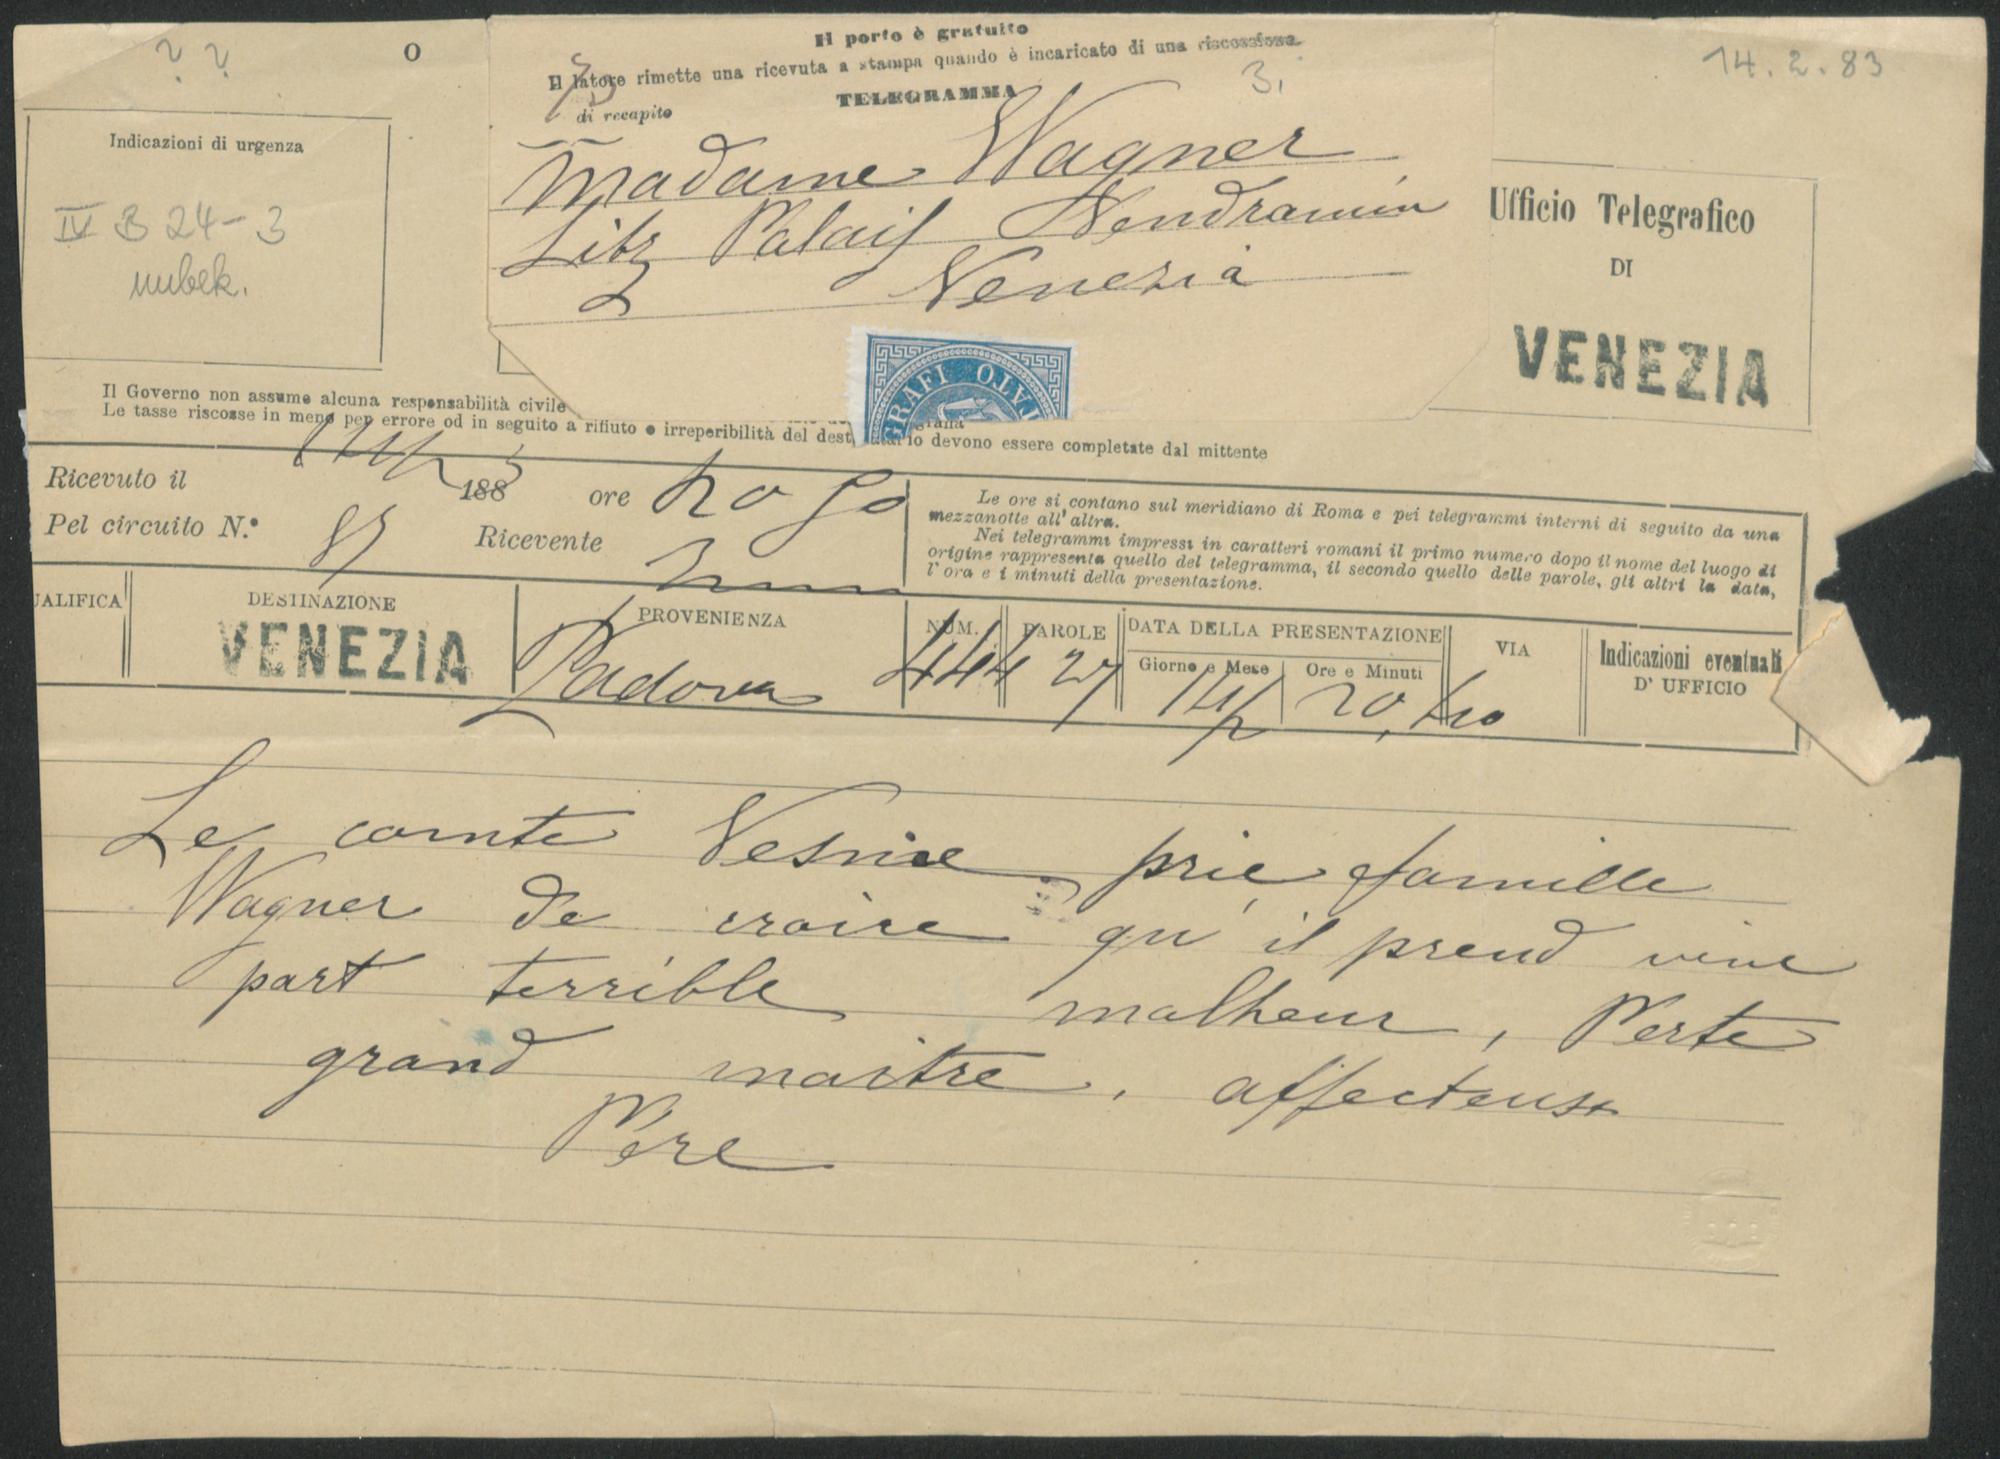 ? ?
O
Il porto è gratuito
Il latore rimette una ricevuta a stampa quando è incaricato di una riscossione.
TELEGRAMMA
di recapito
3.
14. 2. 83
Indicazioni di urgenza
IV B 24-3
unbek.
Madame Wagner
Litz Palais Vendramin
Venezia
Ufficio Telegrafico
DI
VENEZIA
GRAFI
Il Governo non assume alcuna responsabilità civile
Le tasse riscosse in meno per errore od in seguito a rifiuto o irreperibilità del dest lo devono essere completate dal mittente
Ricevuto il 14/2 1883 ore 20 50
Pel circuito N.º Ricevente
Le ore si contano sul meridiano di Roma e pei telegrammi interni di seguito da una
mezzanotte all'altra.
Nei telegrammi impressi in caratteri romani il primo numero dopo il nome del luogo di
origine rappresenta quello del telegramma, il secondo quello delle parole, gli altri la data,
l'ora e i minuti della presentazione.
UALIFICA DESTINAZIONE PROVENIENZA NUM. PAROLE DATA DELLA PRESENTAZIONE VIA Indicazioni eventuali
Giorno e Mese Ore e Minuti D' UFFICIO
VENEZIA Padova 444 27 14/2 20,40
Le comte prie famille
Wagner de croire qu'il prend vive
part terrible malheur, Perte
grand maitre, affecteusx
Père